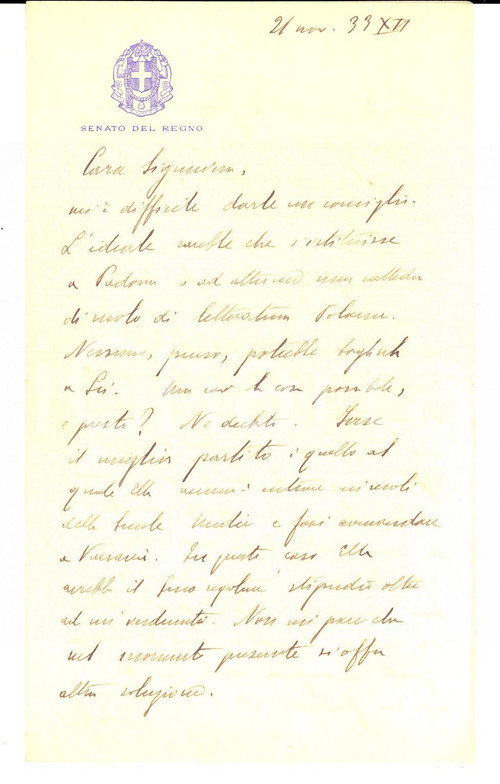 21 nov. 33 XII
SENATO DEL REGNO
Cara Signorina,
mi è difficile darle un consiglio.
L'ideale sarebbe che s'istituisse
a Padova o ad altrove una cattedra
di ruolo di letteratura Polacca.
Nessuno, penso, potrebbe toglierla
a Lei. Ma sarà la cosa possibile,
e presto? Ne dubito. Forse
il miglior partito è quello al
quale Ella accenna: entrare nei ruoli
delle Scuole Medie e farsi comandare
a Varsavia. In questo caso Ella
avrebbe il suo regolare stipendio oltre
ad un'indennità. Non mi pare che
nel momento presente si offra
altra soluzione.